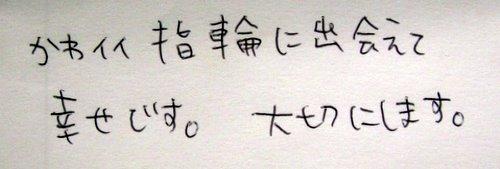 かわイイ 指輪に出会えて
幸せです。 大切にします。